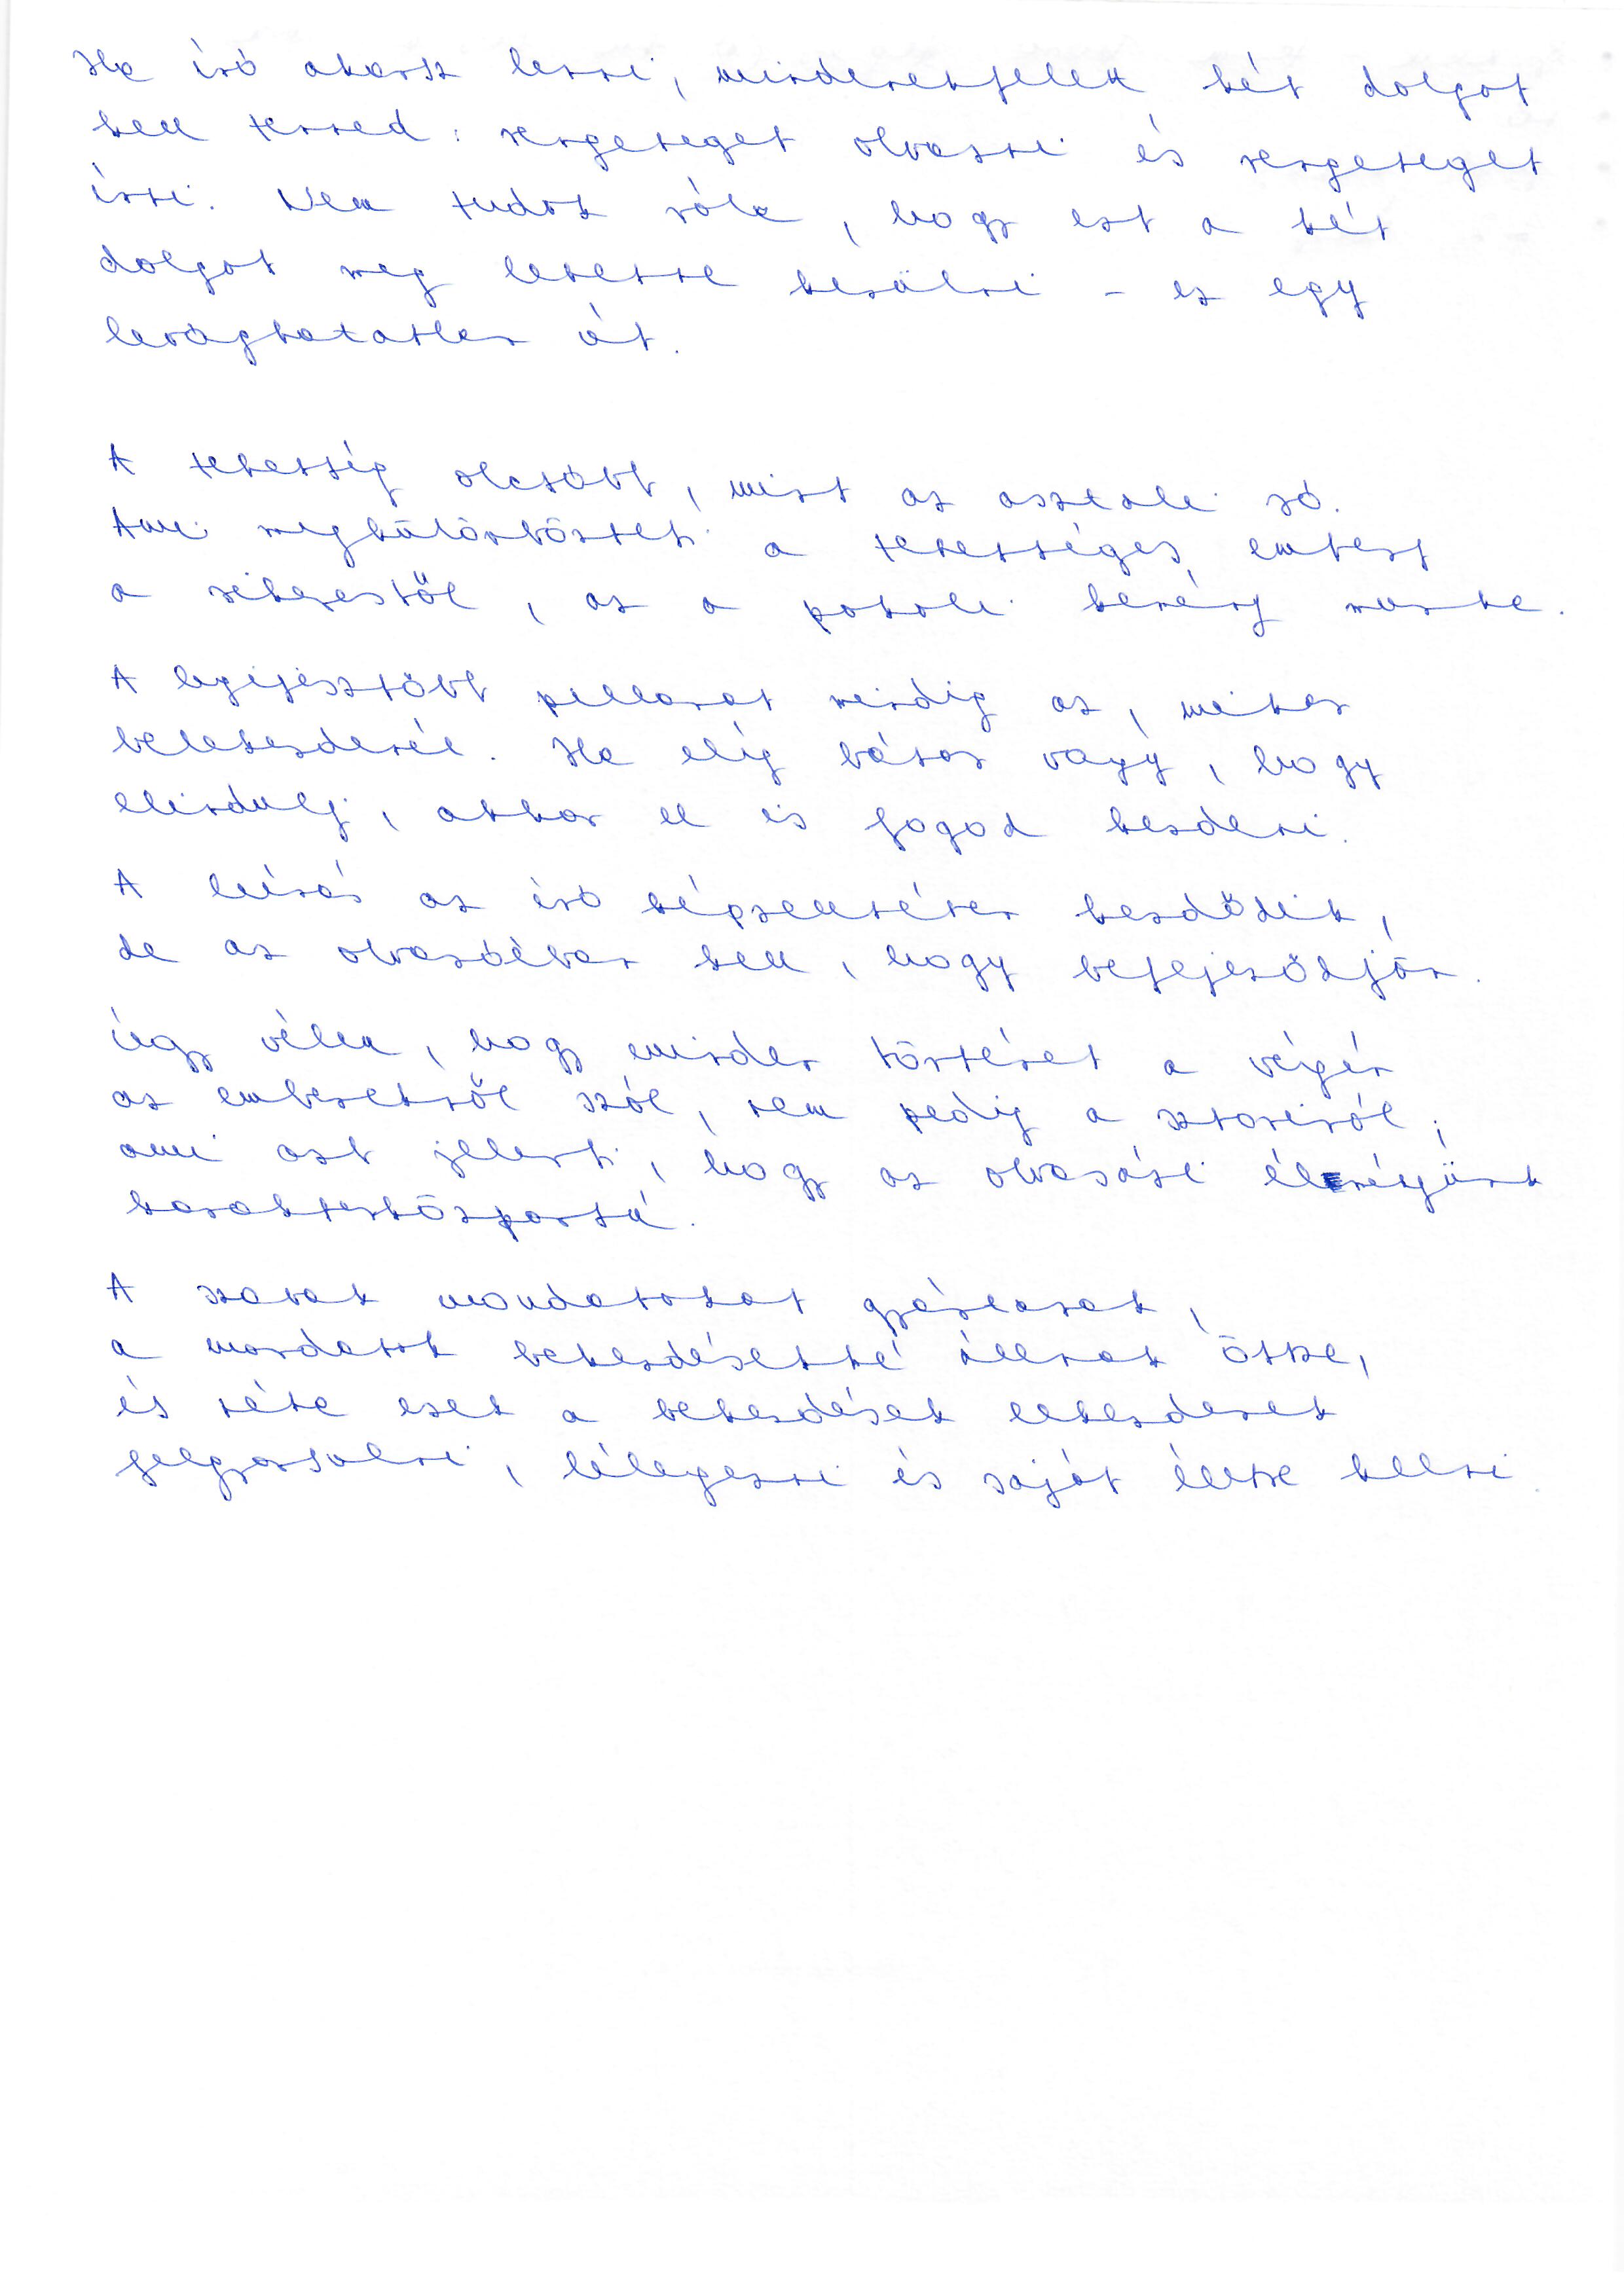 Ha író akarsz lenni, mindenekfelett két dolgot
kell tenned: rengeteget olvasni és rengeteget
írni. Nem tudok róla, hogy ezt a két
dolgot meg lehetne kerülni - ez egy
levághatatlan út.
A tehetség olcsóbb, mint az asztali só.
Ami megkülönbözteti a tehetséges embert
a sikerestől, az a pokoli kemény munka.
A legijesztőbb pillanat mindig az, mikor
belekezdenél. Ha elég bátor vagy, hogy
elindulj, akkor el is fogod kezdeni.
A leírás az író képzeletében kezdődik,
de az olvasóéban kell, hogy befejeződjön.
Úgy vélem, hogy minden történet a végén
az emberekről szól, nem pedig a sztoriról;
ami azt jelenti, hogy az olvasási élményünk
karakterközpontú.
A szavak mondatokat gyártanak,
a mondatok bekezdésekké állnak össze,
és néha ezek a bekezdések elkezdenek
felgyorsulni, lélegezni és saját életre kelni.